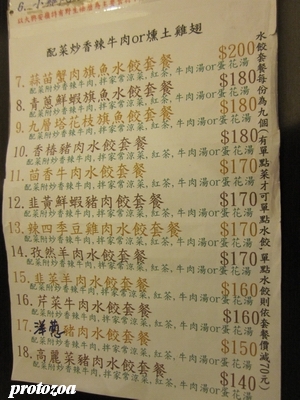 配菜炒香辣牛肉or燻土雞翅
7. 蒜苗蟹肉旗魚水餃套餐 $200
配菜附炒香辣牛肉,拌家常涼菜,紅茶,牛肉湯or蛋花湯
8. 青蔥鮮蝦旗魚水餃套餐 $180
配菜附炒香辣牛肉,拌家常涼菜,紅茶,牛肉湯or蛋花湯
9. 九層塔花枝旗魚水餃套餐 $180
配菜附炒香辣牛肉,拌家常涼菜,紅茶,牛肉湯or蛋花湯
10. 香椿豬肉水餃套餐 $180
配菜附炒香辣牛肉,拌家常涼菜,紅茶,牛肉湯or蛋花湯
11. 茴香牛肉水餃套餐 $170
配菜附炒香辣牛肉,拌家常涼菜,紅茶,牛肉湯or蛋花湯
12. 韭黃鮮蝦豬肉水餃套餐 $170
配菜附炒香辣牛肉,拌家常涼菜,紅茶,牛肉湯or蛋花湯
13. 辣四季豆雞肉水餃套餐 $170
配菜附炒香辣牛肉,拌家常涼菜,紅茶,牛肉湯or蛋花湯
14. 孜然羊肉水餃套餐 $170
配菜附炒香辣牛肉,拌家常涼菜,紅茶,牛肉湯or蛋花湯
15. 韭菜羊肉水餃套餐 $160
配菜附炒香辣牛肉,拌家常涼菜,紅茶,牛肉湯or蛋花湯
16. 芹菜牛肉水餃套餐 $160
配菜附炒香辣牛肉,拌家常涼菜,紅茶,牛肉湯or蛋花湯
17. 洋蔥豬肉水餃套餐 $150
配菜附炒香辣牛肉,拌家常涼菜,紅茶,牛肉湯or蛋花湯
18. 高麗菜豬肉水餃套餐 $140
配菜附炒香辣牛肉,拌家常涼菜,紅茶,牛肉湯or蛋花湯
水餃套餐每份為九個(有單點菜才可單點水餃,單點水餃則依套餐價減70元)
protozoa